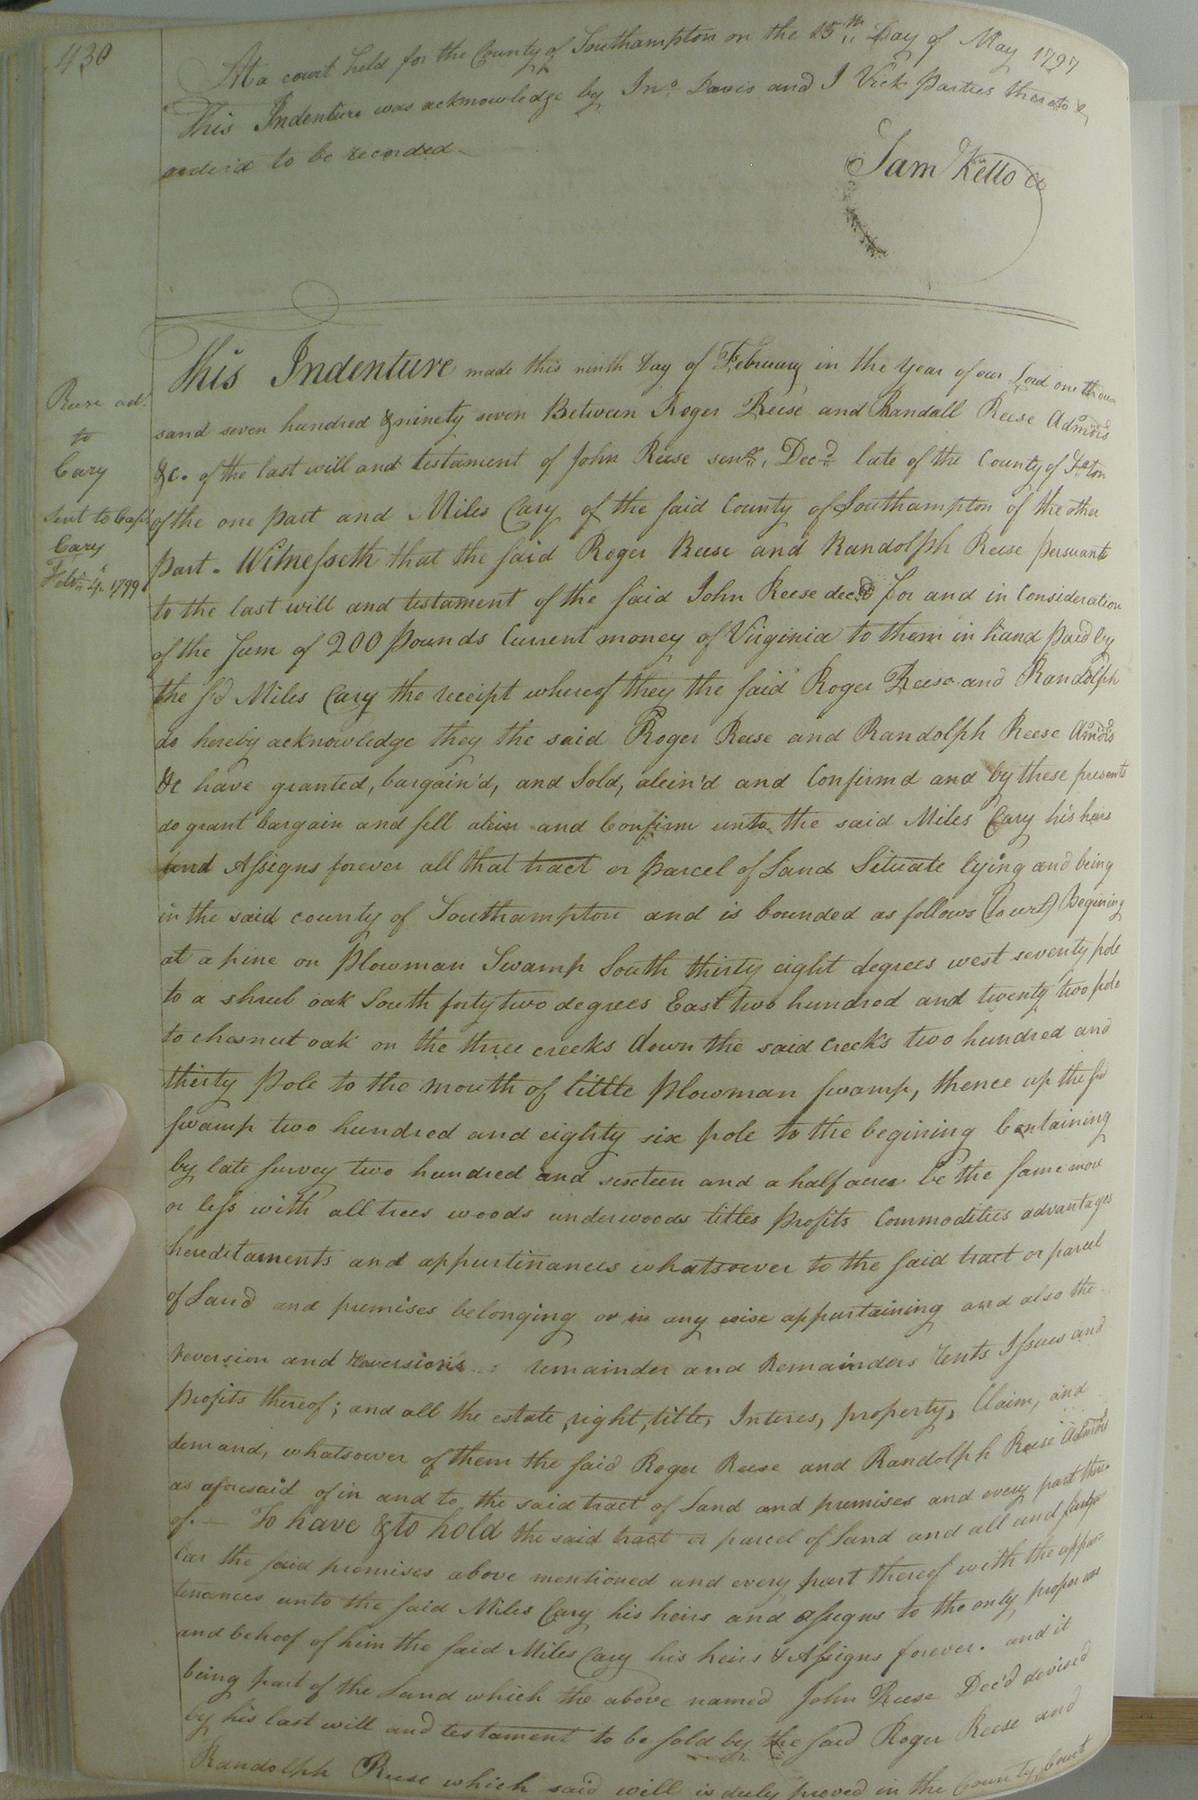 430
At a court held for the County of Southampton on the 15th Day of May 1797
This Indenture was acknowledge by Jno. Davis and J Vick Parties thereto &
order'd to be recorded
Sam Kello CC
This Indenture made this ninth Day of February in the Year of our Lord one thou
sand seven hundred & ninety seven Between Roger Reese and Randall Reese Admors
&c. of the last will and testament of John Reese senr. Decd. late of the County of S.ton
of the one part and Miles Cary of the said County of Southampton of the other
part. Witnesseth that the said Roger Reese and Randolph Reese persuant
to the last will and testament of the said John Reese decd. for and in Consideration
of the Sum of 200 Pounds Current money of Virginia to them in hand Paid by
the sd Miles Cary the receipt whereof they the said Roger Reese and Randolph
do hereby acknowledge they the said Roger Reese and Randolph Reese Amors
&c have granted, bargain'd, and Sold, alein'd and Confirmd and by these presents
do grant bargain and sell alein and Confirm unto the said Miles Cary his heirs
and Assigns forever all that tract or Parcel of Land Situate lying and being
in the said county of Southampton and is bounded as follows (to wit) Begining
at a pine on Plowman Swamp South thirty eight degrees west seventy pole
to a shrub oak South forty two degrees East two hundred and twenty two pole
to chesnut oak on the three creeks down the said Creeks two hundred and
thirty Pole to the mouth of little Plowman swamp, thence up the sd
swamp two hundred and eighty six pole to the begining Containing
by late survey two hundred and sixteen and a half acres be the same more
or less with all trees woods underwoods titles Profits Commodities advantages
hereditaments and appurtinances whatsoever to the said tract or parcel
of Land and premises belonging or in any wise appurtaining and also the
reversion and reversions remainder and Remainders rents Issues and
Profits thereof; and all the estate, right, title, Interes, property, Claim, and
demand, whatsower of them the said Roger Reese and Randolph Reese Admors
as aforesaid of in and to the said tract of Land and premises and every part there
of. — To have & to hold the said tract or parcel of Land and all and singu
lar the said premises above mentioned and every part thereof with the appur
tenances unto the said Miles Cary his heirs and assigns to the only proper use
and behoof of him the said Miles Cary his heirs & Assigns forever. and it
being part of the Land which the above named John Reese Dec'd devised
by his last will and testament to be sold by the said Roger Reese and
Randolph Reese which said will is duly proved in the County Court
Reese ad.
to
Cary
sent to Capt
Cary
Feby. 4. 1799